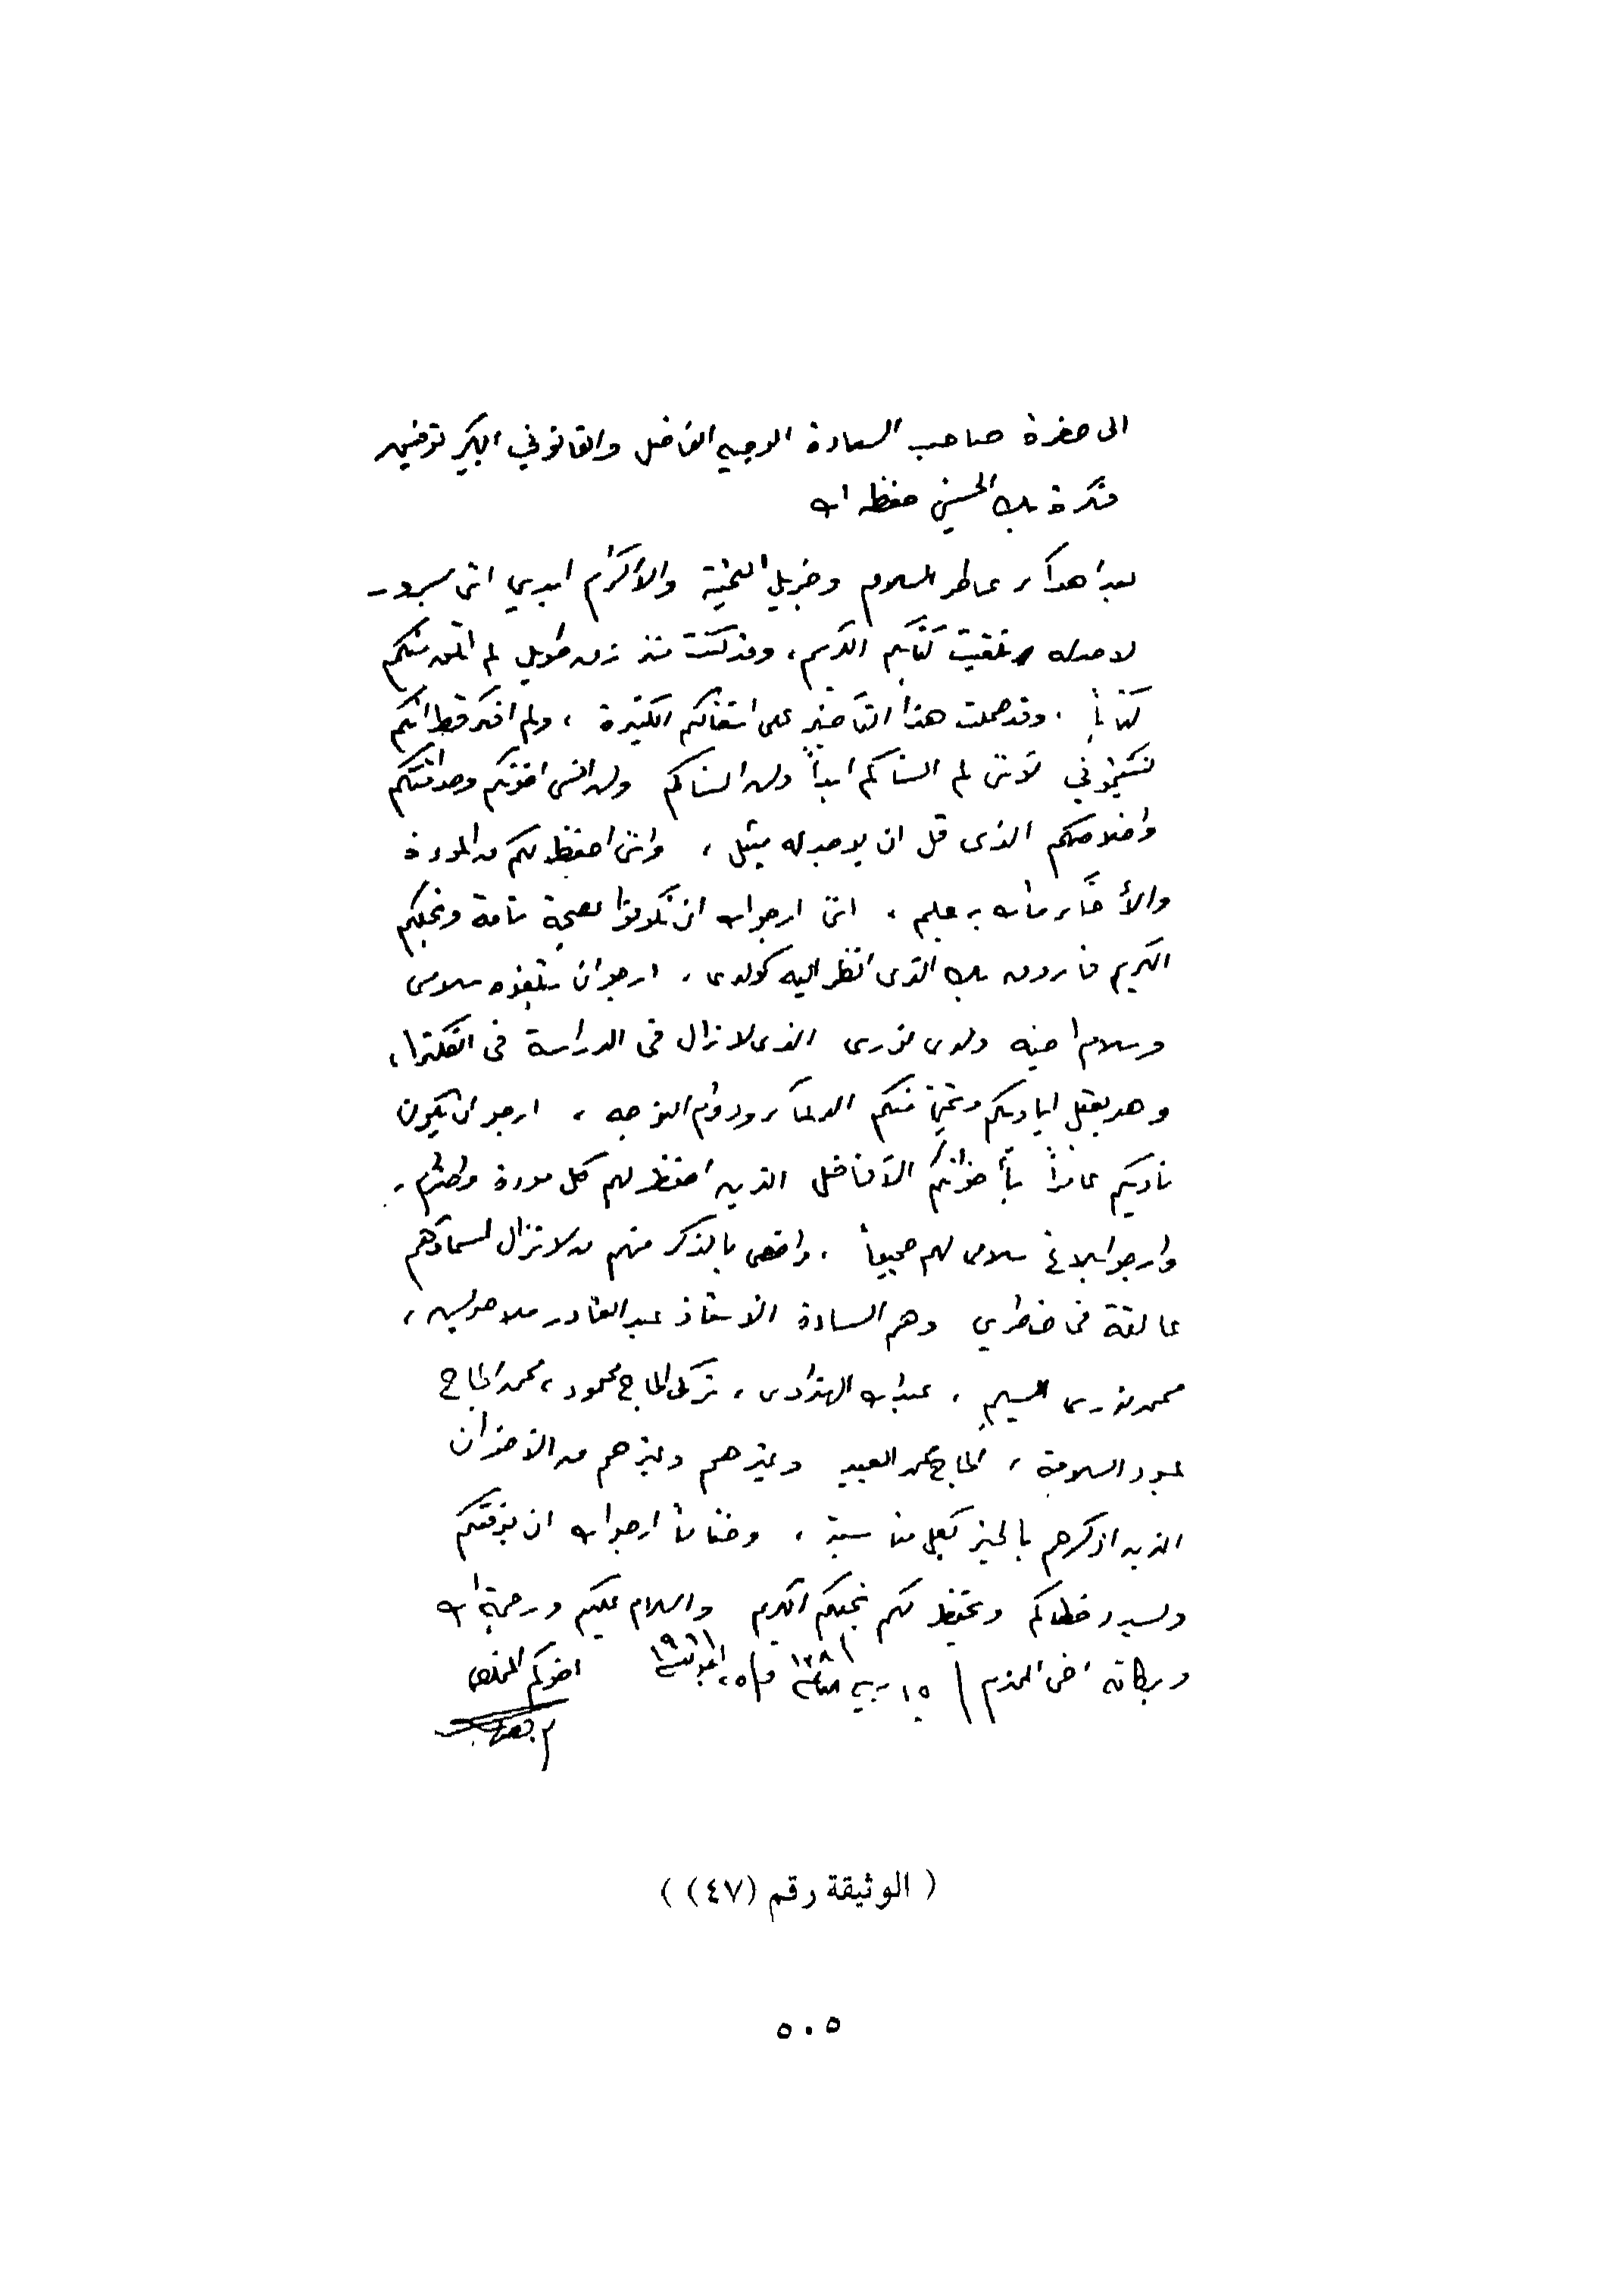 الى حضرة صاحب السعادة الوجيه الفاضل والقانوني الكبير توفيق
فكرة بك الحسيني حفظه الله
بعد اهداء عاطر السلام وجزيل التحية والأكرام ابدي انني بسرور
لا حد له تلقيت كتابكم الكريم، وقد كنت منذ زمن طويل لم اتلق منكم
كتاباً. وقد حملت هذا التأخير على اشغالكم الكثيرة، ولم افكر قط انكم
نسيتموني لأنني لم انساكم ابداً ولن انساكم ولن انسى اخوتكم وصداقتكم
واخلاصكم الذي قل ان يوجد له مثيل، وانني احتفظ لكم من المودة
والأخاء ما الله به عليم، انني ارجو الله ان تكونوا بصحة تامة ونجلكم
الكريم فاروق بك الذي انظر اليه كولدي، ارجو ان تبلغوه سلامي
وسلام اخيه ولدي نوري الذي لا زال في الدراسة في انكلترا،
وهو يقبل اياديكم ويتمنى منكم الدعاء ودوام التوجه، ارجو ان يكون
ناديكم عامراً بأخوانكم الأفاضل الذين احتفظ لهم كل مودة واحترام.
وارجو ابلاغ سلامي لهم جميعاً، واخص بالذكر منهم من لا تزال اسماؤهم
عالقة في خاطري وهم السادة الاستاذ عبد القادر ملا حويش،
محمد نوري، عبد الله، تركي الحاج محمود، محمد الحاج
عبود السلامة، الحاج محمد العبيد وغيرهم وغيرهم من الأخوان
الذين اذكرهم بالخير بكل مناسبة، وختاماً ارجو الله ان يوفقكم
ويسدد خطاكم ويحفظ لكم نجلكم الكريم والسلام عليكم ورحمة الله
وبركاته اخي المحترم / ١٥ ربيع ١٣٨١ و ٢٥ اغسطس ١٩٦١ اخوكم المخلص
( الوثيقة رقم (٤٧) )
٥٠٥